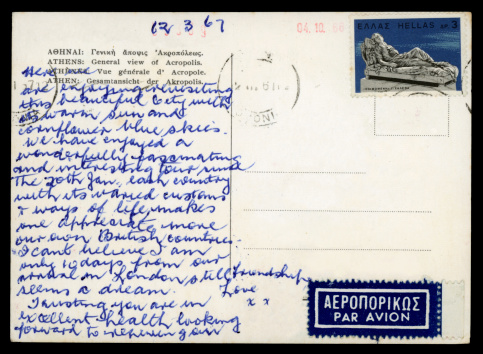 12 3 67
04.10.
ΕΛΛΑΣ HELLAS ΔΡ. 3
ΑΘΗΝΑΙ: Γενική ἄποψις Ἀκροπόλεως.
ATHENS: General view of Acropolis.
ATHENES: Vue générale d' Acropole.
ATHEN: Gesamtansicht der Akropolis.
Here we
are enjoying revisiting
this beautiful City with
its warm sun and
cornflower blue skies.
We have enjoyed a
wonderfully fascinating
and interesting tour
the 20th Jan. each country
with its varied customs
& ways of life, makes
one appreciate more
our own British countries.
I can't believe I am
only 10 days from our
arrival in London still
seems a dream.
I trusting you are in
excellent health looking
forward to
Friendship
Love
x x
ΑΕΡΟΠΟΡΙΚΩΣ
PAR AVION